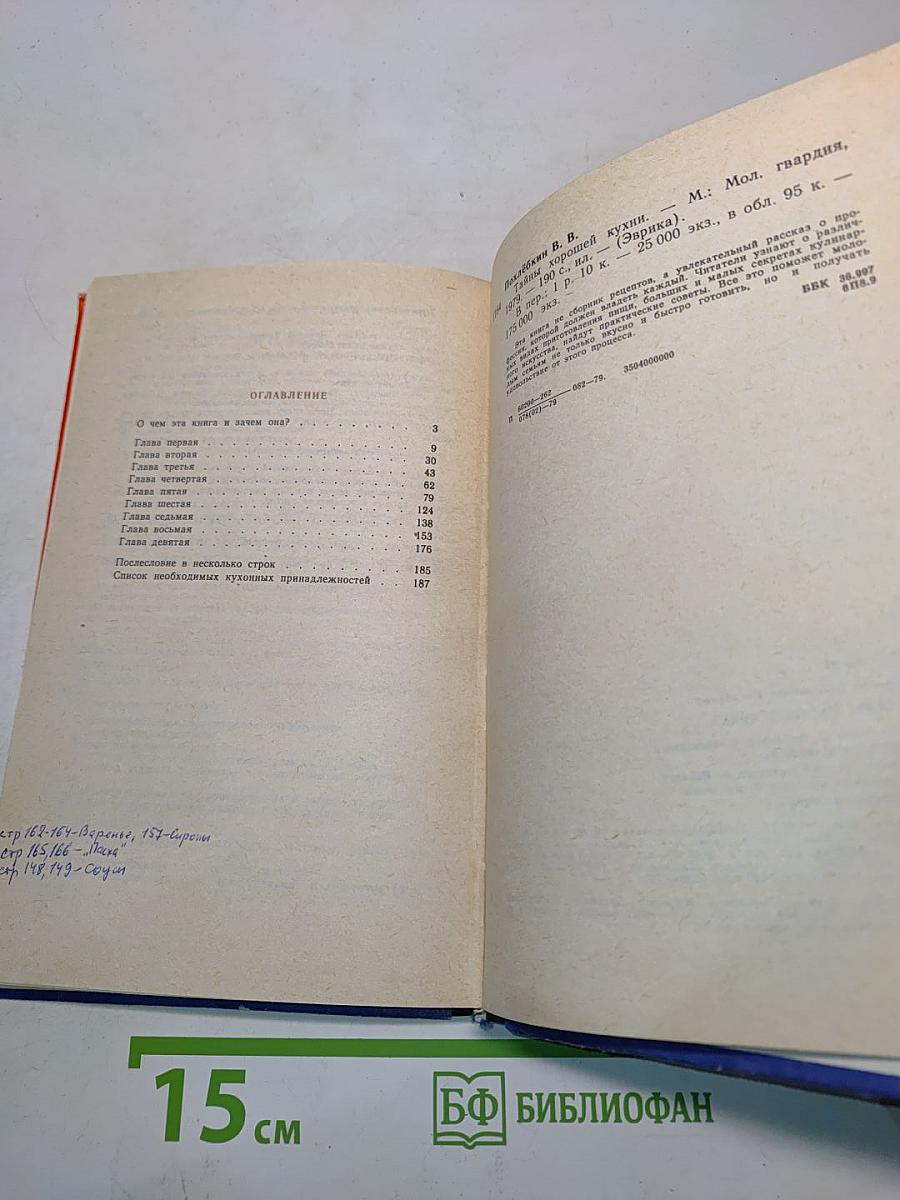 ОГЛАВЛЕНИЕ
О чем эта книга и зачем она? . . . . . . . . 3
Глава первая . . . . . . . . . . . . . . . 9
Глава вторая . . . . . . . . . . . . . . . 30
Глава третья . . . . . . . . . . . . . . . 43
Глава четвертая . . . . . . . . . . . . . . 62
Глава пятая . . . . . . . . . . . . . . . 79
Глава шестая . . . . . . . . . . . . . . . 124
Глава седьмая . . . . . . . . . . . . . . 138
Глава восьмая . . . . . . . . . . . . . . 153
Глава девятая . . . . . . . . . . . . . . 176
Послесловие в несколько строк . . . . . . . . 185
Список необходимых кухонных принадлежностей . . 187
стр 162-164-Варенье, 157-Сиропы
стр 165,166 - „Пасха"
стр 148,149 - Соусы
Похлёбкин В. В.
Тайны хорошей кухни. — М.: Мол. гвардия,
1979. — 190 с., ил. — (Эврика).
В пер.: 1 р. 10 к. — 25 000 экз., в обл. 95 к. —
175 000 экз.
Эта книга не сборник рецептов, а увлекательный рассказ о про-
фессии, которой должен владеть каждый. Читатели узнают о различ-
ных видах приготовления пищи, больших и малых секретах кулинар-
ного искусства, найдут практические советы. Все это поможет моло-
дым семьям не только вкусно и быстро готовить, но и получать
удовольствие от этого процесса.
ББК 36.997
6П8.9
П 60200—262
078(02)—79 082—79. 3504000000
15 см
БФ БИБЛИОФАН